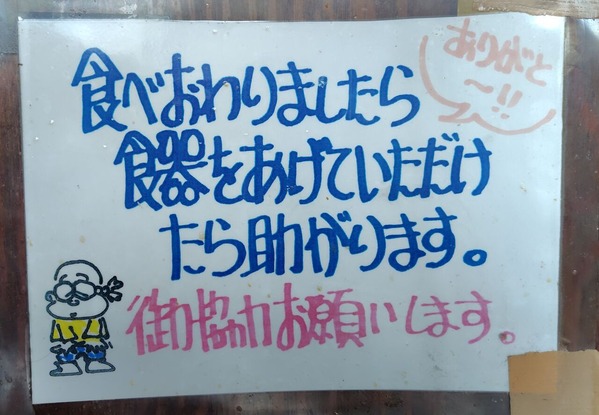 ありがと
〜!!
食べおわりましたら
食器をあげていただけ
たら助かります。
御力協力お願いします。